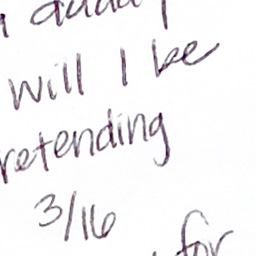 will I be
retending
3/16
for